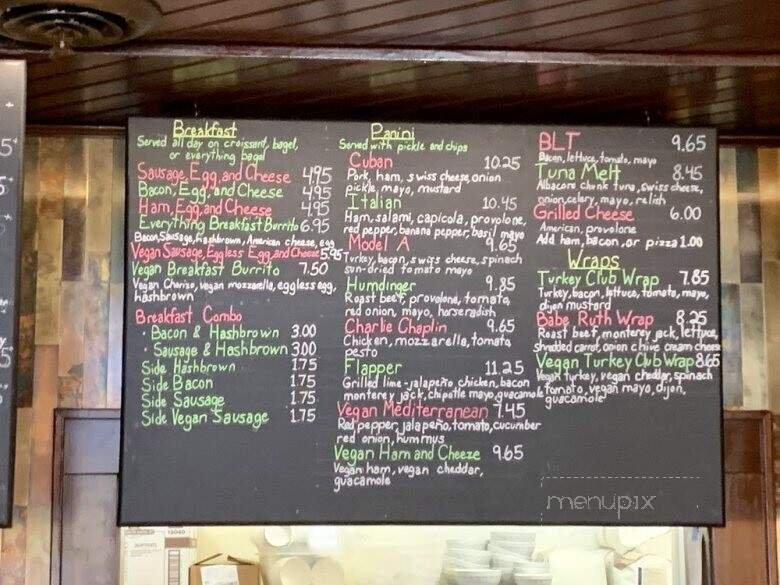 Breakfast
Served all day on croissant, bagel,
or everything bagel
Sausage, Egg, and Cheese 4.95
Bacon, Egg, and Cheese 4.95
Ham, Egg, and Cheese 4.95
Everything Breakfast Burrito 6.95
Bacon, Sausage, hashbrown, American cheese, egg
Vegan Sausage, Eggless Egg, and Cheese 5.95
Vegan Breakfast Burrito 7.50
Vegan Chorizo, vegan mozzarella, eggless egg,
hashbrown
Breakfast Combo
· Bacon & Hashbrown 3.00
· Sausage & Hashbrown 3.00
Side Hashbrown 1.75
Side Bacon 1.75
Side Sausage 1.75
Side Vegan Sausage 1.75
Panini
Served with pickle and chips
Cuban 10.25
Pork, ham, swiss cheese, onion
pickle, mayo, mustard
Italian 10.45
Ham, salami, capicola, provolone,
red pepper, banana pepper, basil mayo
Model A 9.65
Turkey, bacon, swiss cheese, spinach
sun-dried tomato mayo
Humdinger 9.85
Roast beef, provolone, tomato,
red onion, mayo, horseradish
Charlie Chaplin 9.65
Chicken, mozzarella, tomato
pesto
Flapper 11.25
Grilled lime-jalapeño chicken, bacon
monterey jack, chipotle mayo, guacamole
Vegan Mediterranean 7.45
Red pepper, jalapeño, tomato, cucumber
red onion, hummus
Vegan Ham and Cheeze 9.65
Vegan ham, vegan cheddar,
guacamole
BLT 9.65
Bacon, lettuce, tomato, mayo
Tuna Melt 8.45
Albacore chunk tuna, swiss cheese,
onion, celery, mayo, relish
Grilled Cheese 6.00
American, provolone
Add ham, bacon, or pizza 1.00
Wraps
Turkey Club Wrap 7.85
Turkey, bacon, lettuce, tomato, mayo,
dijon mustard
Babe Ruth Wrap 8.25
Roast beef, monterey jack, lettuce,
shredded carrot, onion chive cream cheese
Vegan Turkey Club Wrap 8.65
Vegan turkey, vegan cheddar, spinach
tomato, vegan mayo, dijon,
guacamole
menupix